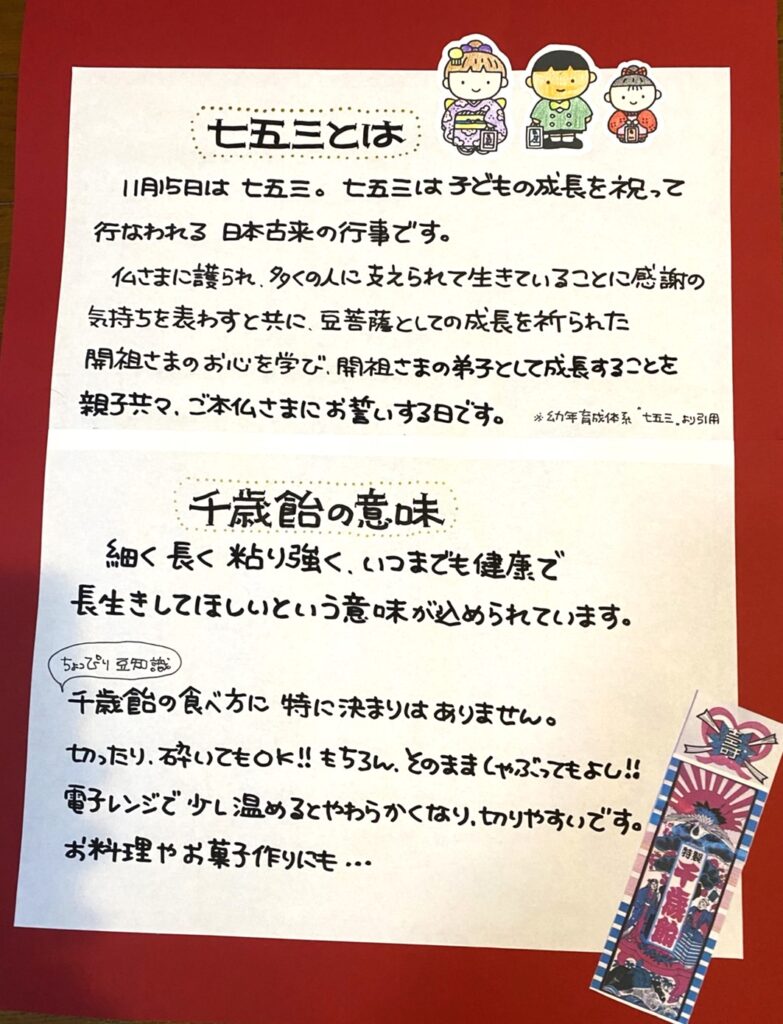 七五三とは
11月15日は 七五三。七五三は子どもの成長を祝って
行なわれる 日本古来の行事です。
仏さまに護られ、多くの人に支えられて生きていることに感謝の
気持ちを表わすと共に、豆菩薩としての成長を祈られた
開祖さまのお心を学び、開祖さまの弟子として成長することを
親子共々、ご本仏さまにお誓いする日です。
※幼年育成体系“七五三„より引用
千歳飴の意味
細く 長く 粘り強く、いつまでも健康で
長生きしてほしいという意味が込められています。
ちょっぴり豆知識
千歳飴の食べ方に 特に決まりはありません。
切ったり、砕いてもOK!! もちろん、そのまましゃぶってもよし!!
電子レンジで少し温めるとやわらかくなり、切りやすいです。
お料理やお菓子作りにも…
壽
特製
千歳飴